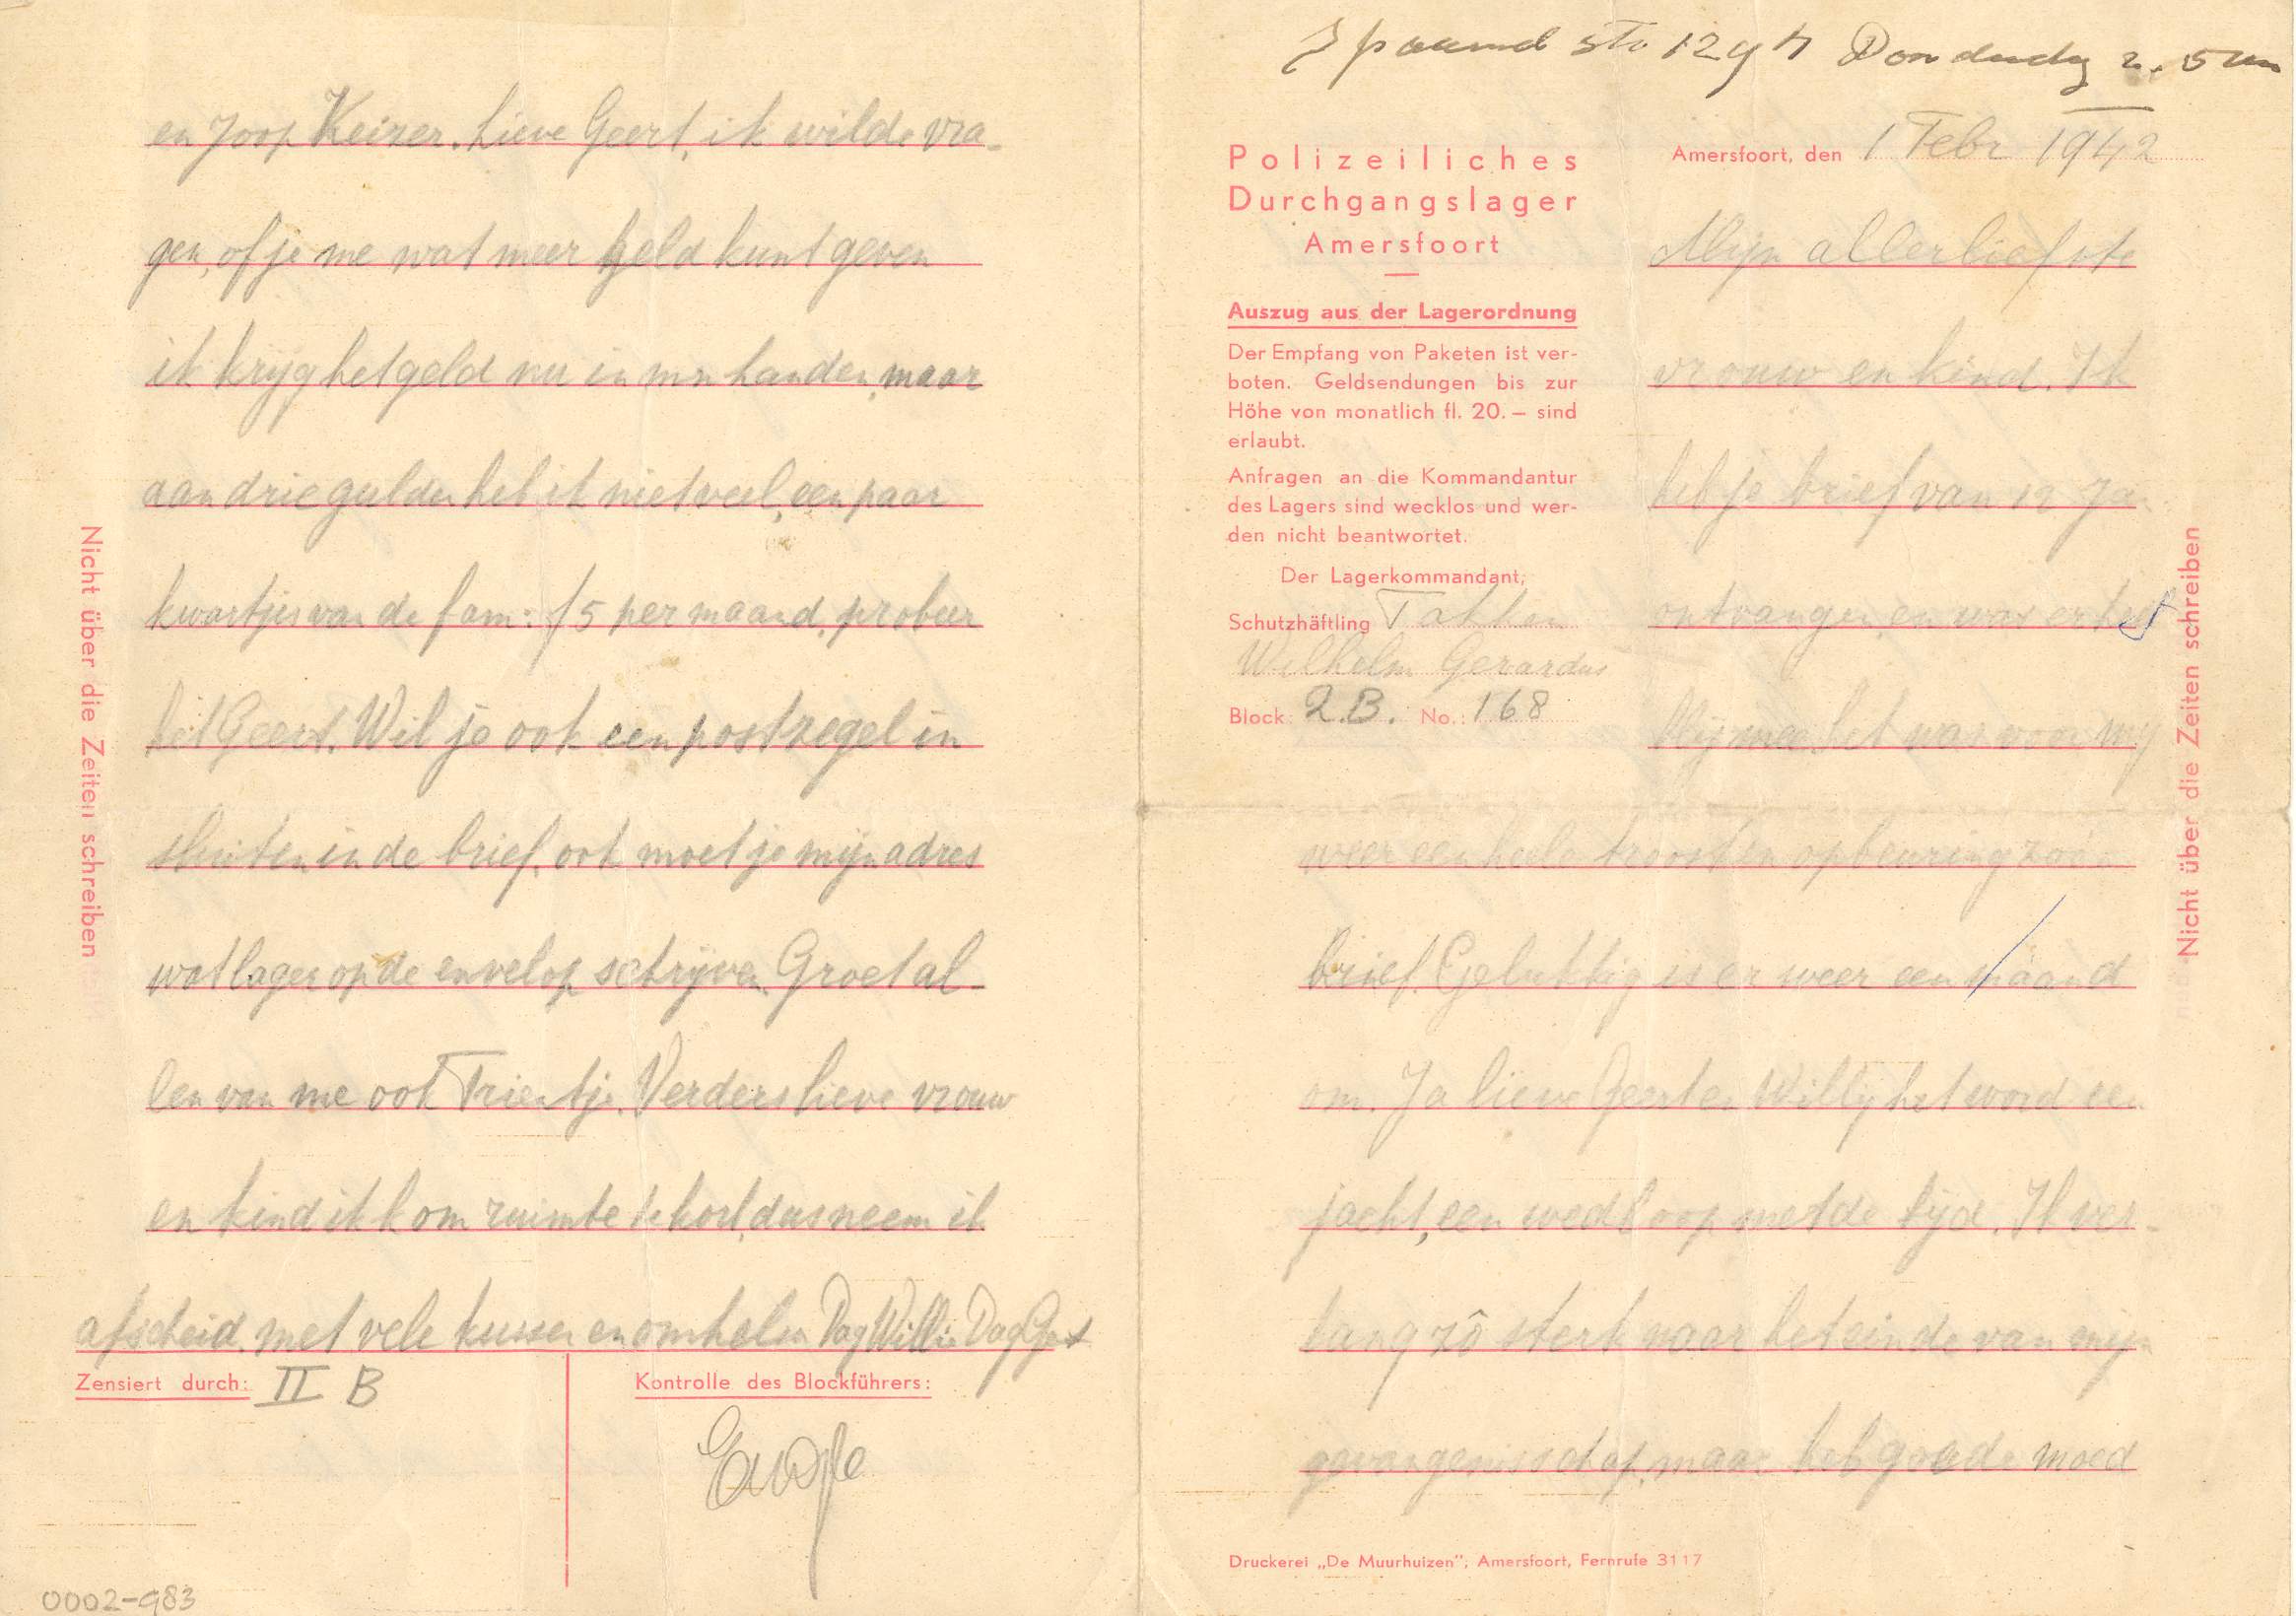 Donderdag 2. 5 uur
Polizeiliches
Durchgangslager
Amersfoort
Auszug aus der Lagerordnung
Der Empfang von Paketen ist ver-
boten. Geldsendungen bis zur
Höhe von monatlich fl. 20.— sind
erlaubt.
Anfragen an die Kommandantur
des Lagers sind wecklos und wer-
den nicht beantwortet.
Der Lagerkommandant;
Schutzhäftling
Wilhelm Gerardus
Block: 2.B. No.: 168
Amersfoort, den 1 Febr 1942
Mijn allerliefste
vrouw en kind. Ik
heb je brief van 12 Ja-
ontvangen en was er heel
blij mee het was voor mij
weer een hele troost en opbeuring zoo'n
brief. Gelukkig is er weer een maand
om. Ja lieve Geert en Willy het word een
jacht, een wedloop met de tijd. Ik ver-
lang zó sterk naar het einde van mijn
gevangenisschap, maar heb goede moed
Nicht über die Zeiten schreiben
Druckerei „De Muurhuizen"; Amersfoort, Fernrufe 3117
en Joop Keizer. Lieve Geert, ik wilde vra-
gen, of je me wat meer geld kunt geven
ik kryg het geld nu in mn handen, maar
aan drie gulden heb ik niet veel, een paar
kwartjes van de fam: f 5 per maand, probeer
het Geert. Wil je ook een postzegel in
sluiten in de brief, ook moet je mijn adres
wat lager op de envelop schrijven. Groet al-
len van me ook Trientje. Verders lieve vrouw
en kind ik kom ruimte te kort, dus neem ik
afscheid, met vele kussen en omhelsn Dag Willie Dag Geert
Zensiert durch: II B
Kontrolle des Blockführers:
Nicht über die Zeiten schreiben
0002-983